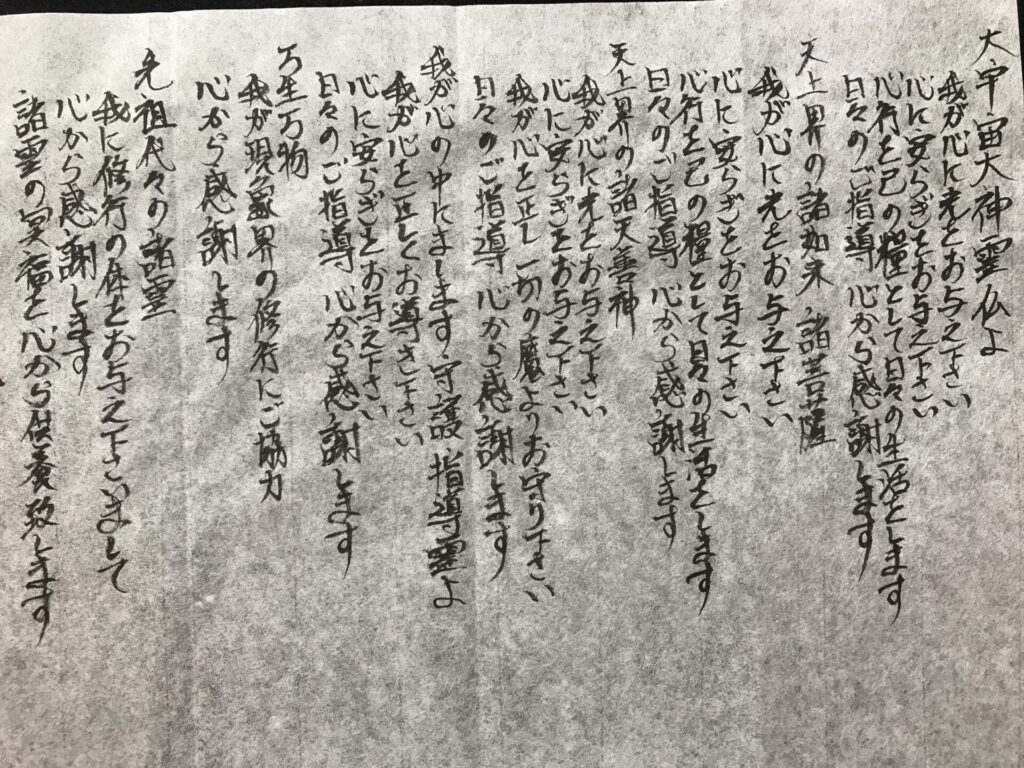 大宇宙大神霊仏よ
我が心に光をお与え下さい
心に安らぎをお与え下さい
心行を己の糧として日々の生活をします
日々のご指導 心から感謝します
天上界の諸如来 諸菩薩
我が心に光をお与え下さい
心に安らぎをお与え下さい
心行を己の糧として日々の生活をします
日々のご指導 心から感謝します
天上界の諸天善神
我が心に光をお与え下さい
心に安らぎをお与え下さい
我が心を正し 一切の魔よりお守り下さい
日々のご指導 心から感謝します
我が心の中にまします 守護 指導霊よ
我が心を正しくお導き下さい
心に安らぎをお与え下さい
日々のご指導 心から感謝します
万生万物
我が現象界の修行にご協力
心から感謝します
先祖代々の諸霊
我に修行の体をお与え下さいまして
心から感謝します
諸霊の冥福を心から供養致します